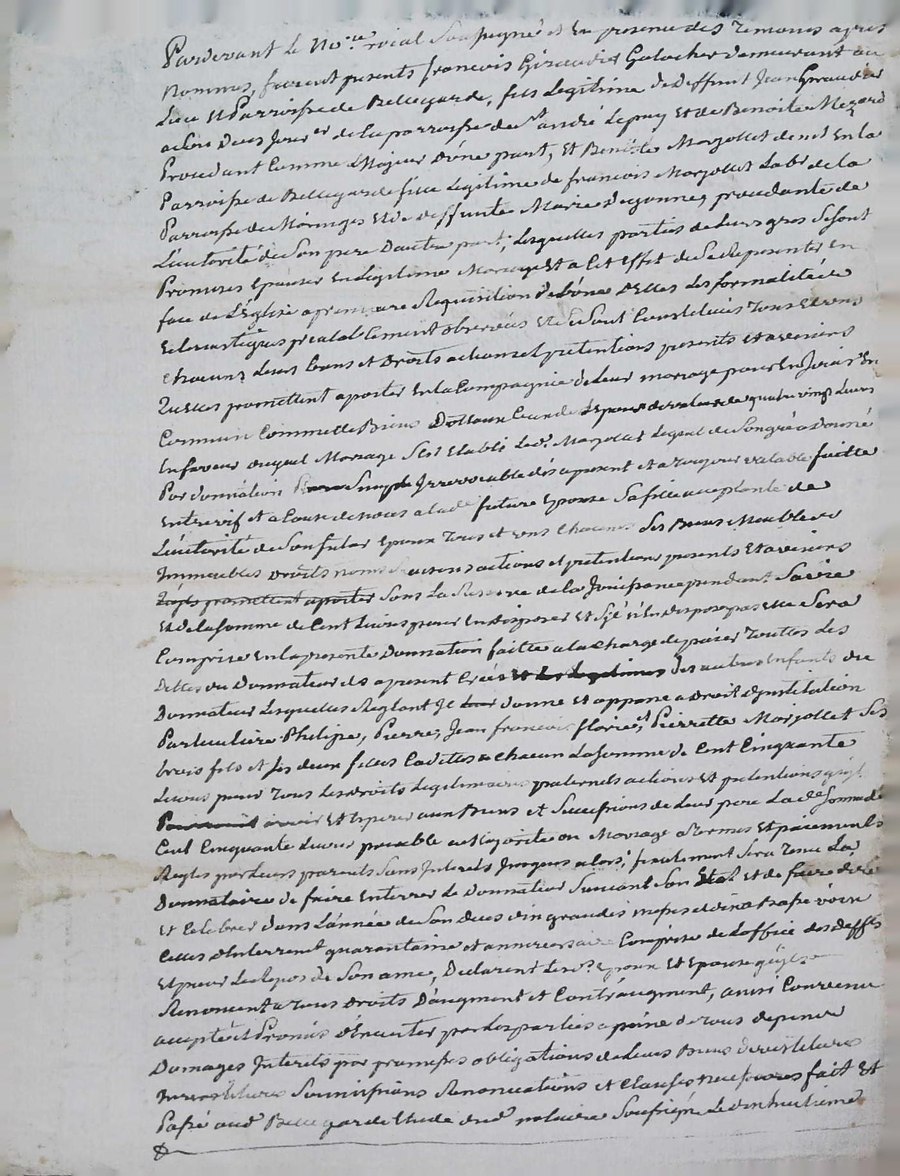 Pardevant Le No.re roial Soussigné et En presence des Temoins apres
Nommes, furent presents françois Giraudier Galocher demeurant au
Lieu et Parroisse de Bellegarde, fils Legitime de deffunt Jean Giraudier
de la parroisse de St andré Le puy et de Benoite
Procedant Comme Majeur D'une part, Et Benoite Marjollet demt En la
Parroisse de Bellegarde fille Legitime de françois Marjollet Labr de la
Parroisse de Maringes Et de deffunte Marie procedante de
L'autorité de Son pere D'autre part; Lesquelles parties de Leurs gres Se Sont
Promises Epouser En Legitime Mariage Et a Cet Effet de Se Represanter En
face de L'Eglise a premiere Requisition de L'une D'Elles Les formalités
Eclesiastiques prealablement observées Et Se Sont Constitués Tous Et uns
Chacuns Leurs biens et Droits actions et pretentions presents et avenirs
Qu'elles promettent aporter En la Compagnie de Leur mariage pour En Jouir En
Commun Comme de Biens Dottaux de quatre vingt Livres
En faveur duquel Mariage S'est Etabli Led. Marjollet Lequel de Son gré a Donné
Par donnation Simple Irrevocable des apresent et a toujour valable faitte
Entrevif et a Cause de noces a lade future Epouse Sa fille acceptante de
L'autorité de Son futur Epoux Tous et uns Chacuns Ses Biens Meubles et
Immeubles droits noms raisons actions et pretentions presents Et avenirs
Sous La Reserve de la Jouissance pendant Sa vie
Et de la Somme de Cent Livres pour En disposer Et S'il n'En dispose pas Elle Sera
Comprise En la presente Donnation faitte a la Charge de paier Touttes Les
Dettes du Donnateur des apresent Créés des autres Enfants du
Donnateur Lesquelles Reglant Il donne Et appane a Droit d'Institution
Particuliere Philipe, Pierre, Jean francois, florie et Pierrette Marjollet Ses
trois fils et Ses deux filles Cadettes a chacun La Somme de Cent Cinquante
Livres pour Tous Les droits Legitimaires paternels actions Et pretentions
Et Esperer aux Biens et Successions de Leur pere La de Somme de
Cent Cinquante Livres payable a Majorité ou Mariage a Termes Et paiements
Reglés par Leurs parents Sans Interets Jusques alors; finalement Sera Tenu La
Donnataire de faire Enterrer Le Donnateur Suivant Son Etat et de faire dire
Et Celebrer Dans L'année de Son Deces vingt grandes messes
Celles d'Interrement quarantaine et anniversaire Comprise de L'office des deffts
Et pour Le Repos de Son ame, Declarent Lesd. Epoux Et Epouse
Renoncent a Tous Droits D'augment et Contraugment, ainsi Convenu
accepté et Promis d'Executer par Les parties a peine de Tous depens
Domages Interets par promesses obligations de Leurs Biens
Soumissions Renonciations et Clauses fait Et
Passé aud Bellegarde Etude dud notaire Soussigné Le vint huitieme